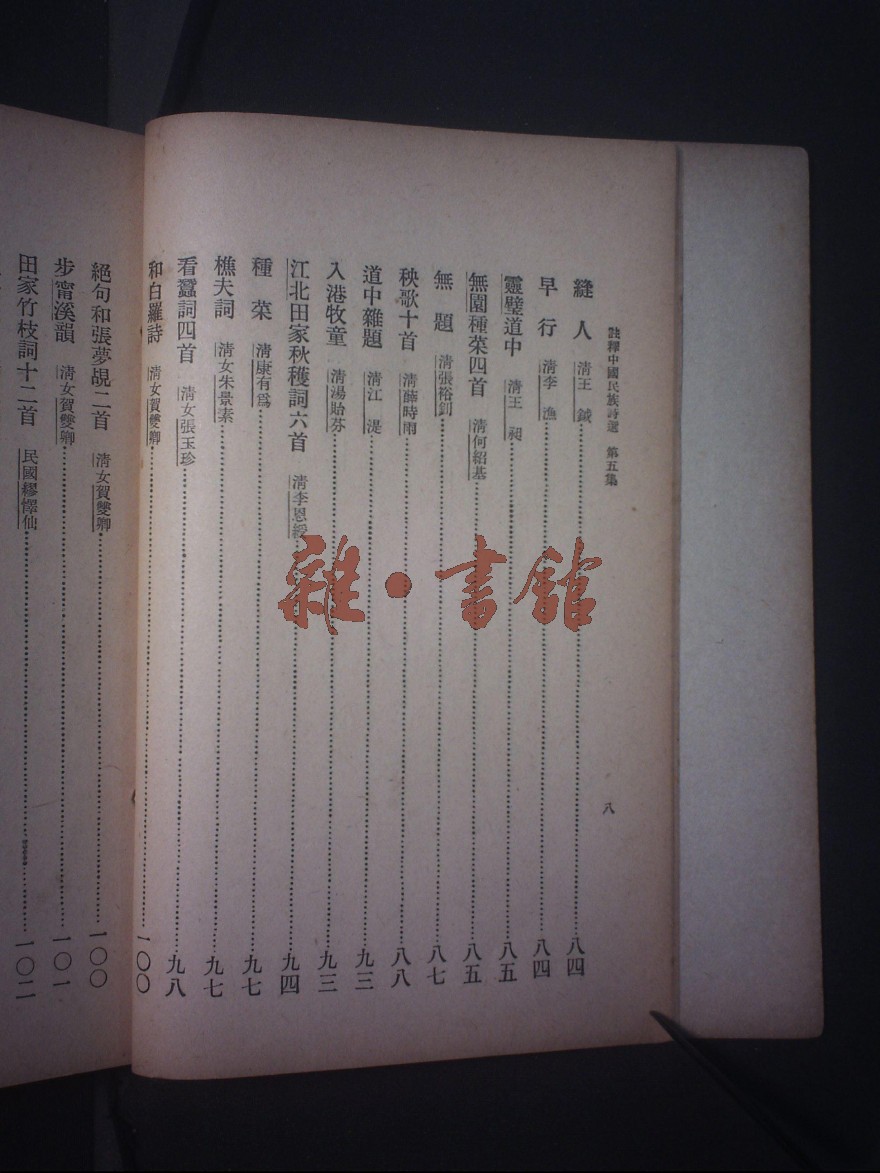 註釋中國民族詩選 第五集 八
縫人 清王鉞 八四
早行 清李漁 八四
靈璧道中 清王昶 八五
無園種菜四首 清何紹基 八五
無題 清張裕釗 八七
秧歌十首 清薛時雨 八八
道中雜題 清江湜 九三
入港牧童 清湯貽芬 九三
江北田家秋穫詞六首 清李恩綬 九四
種菜 清康有爲 九七
樵夫詞 清女朱景素 九七
看蠶詞四首 清女張玉珍 九八
和白羅詩 清女賀雙卿 一〇〇
絕句和張夢覘二首 清女賀雙卿 一〇〇
步甯溪韻 清女賀雙卿 一〇一
田家竹枝詞十二首 民國繆懌仙 一〇二
雜·書館